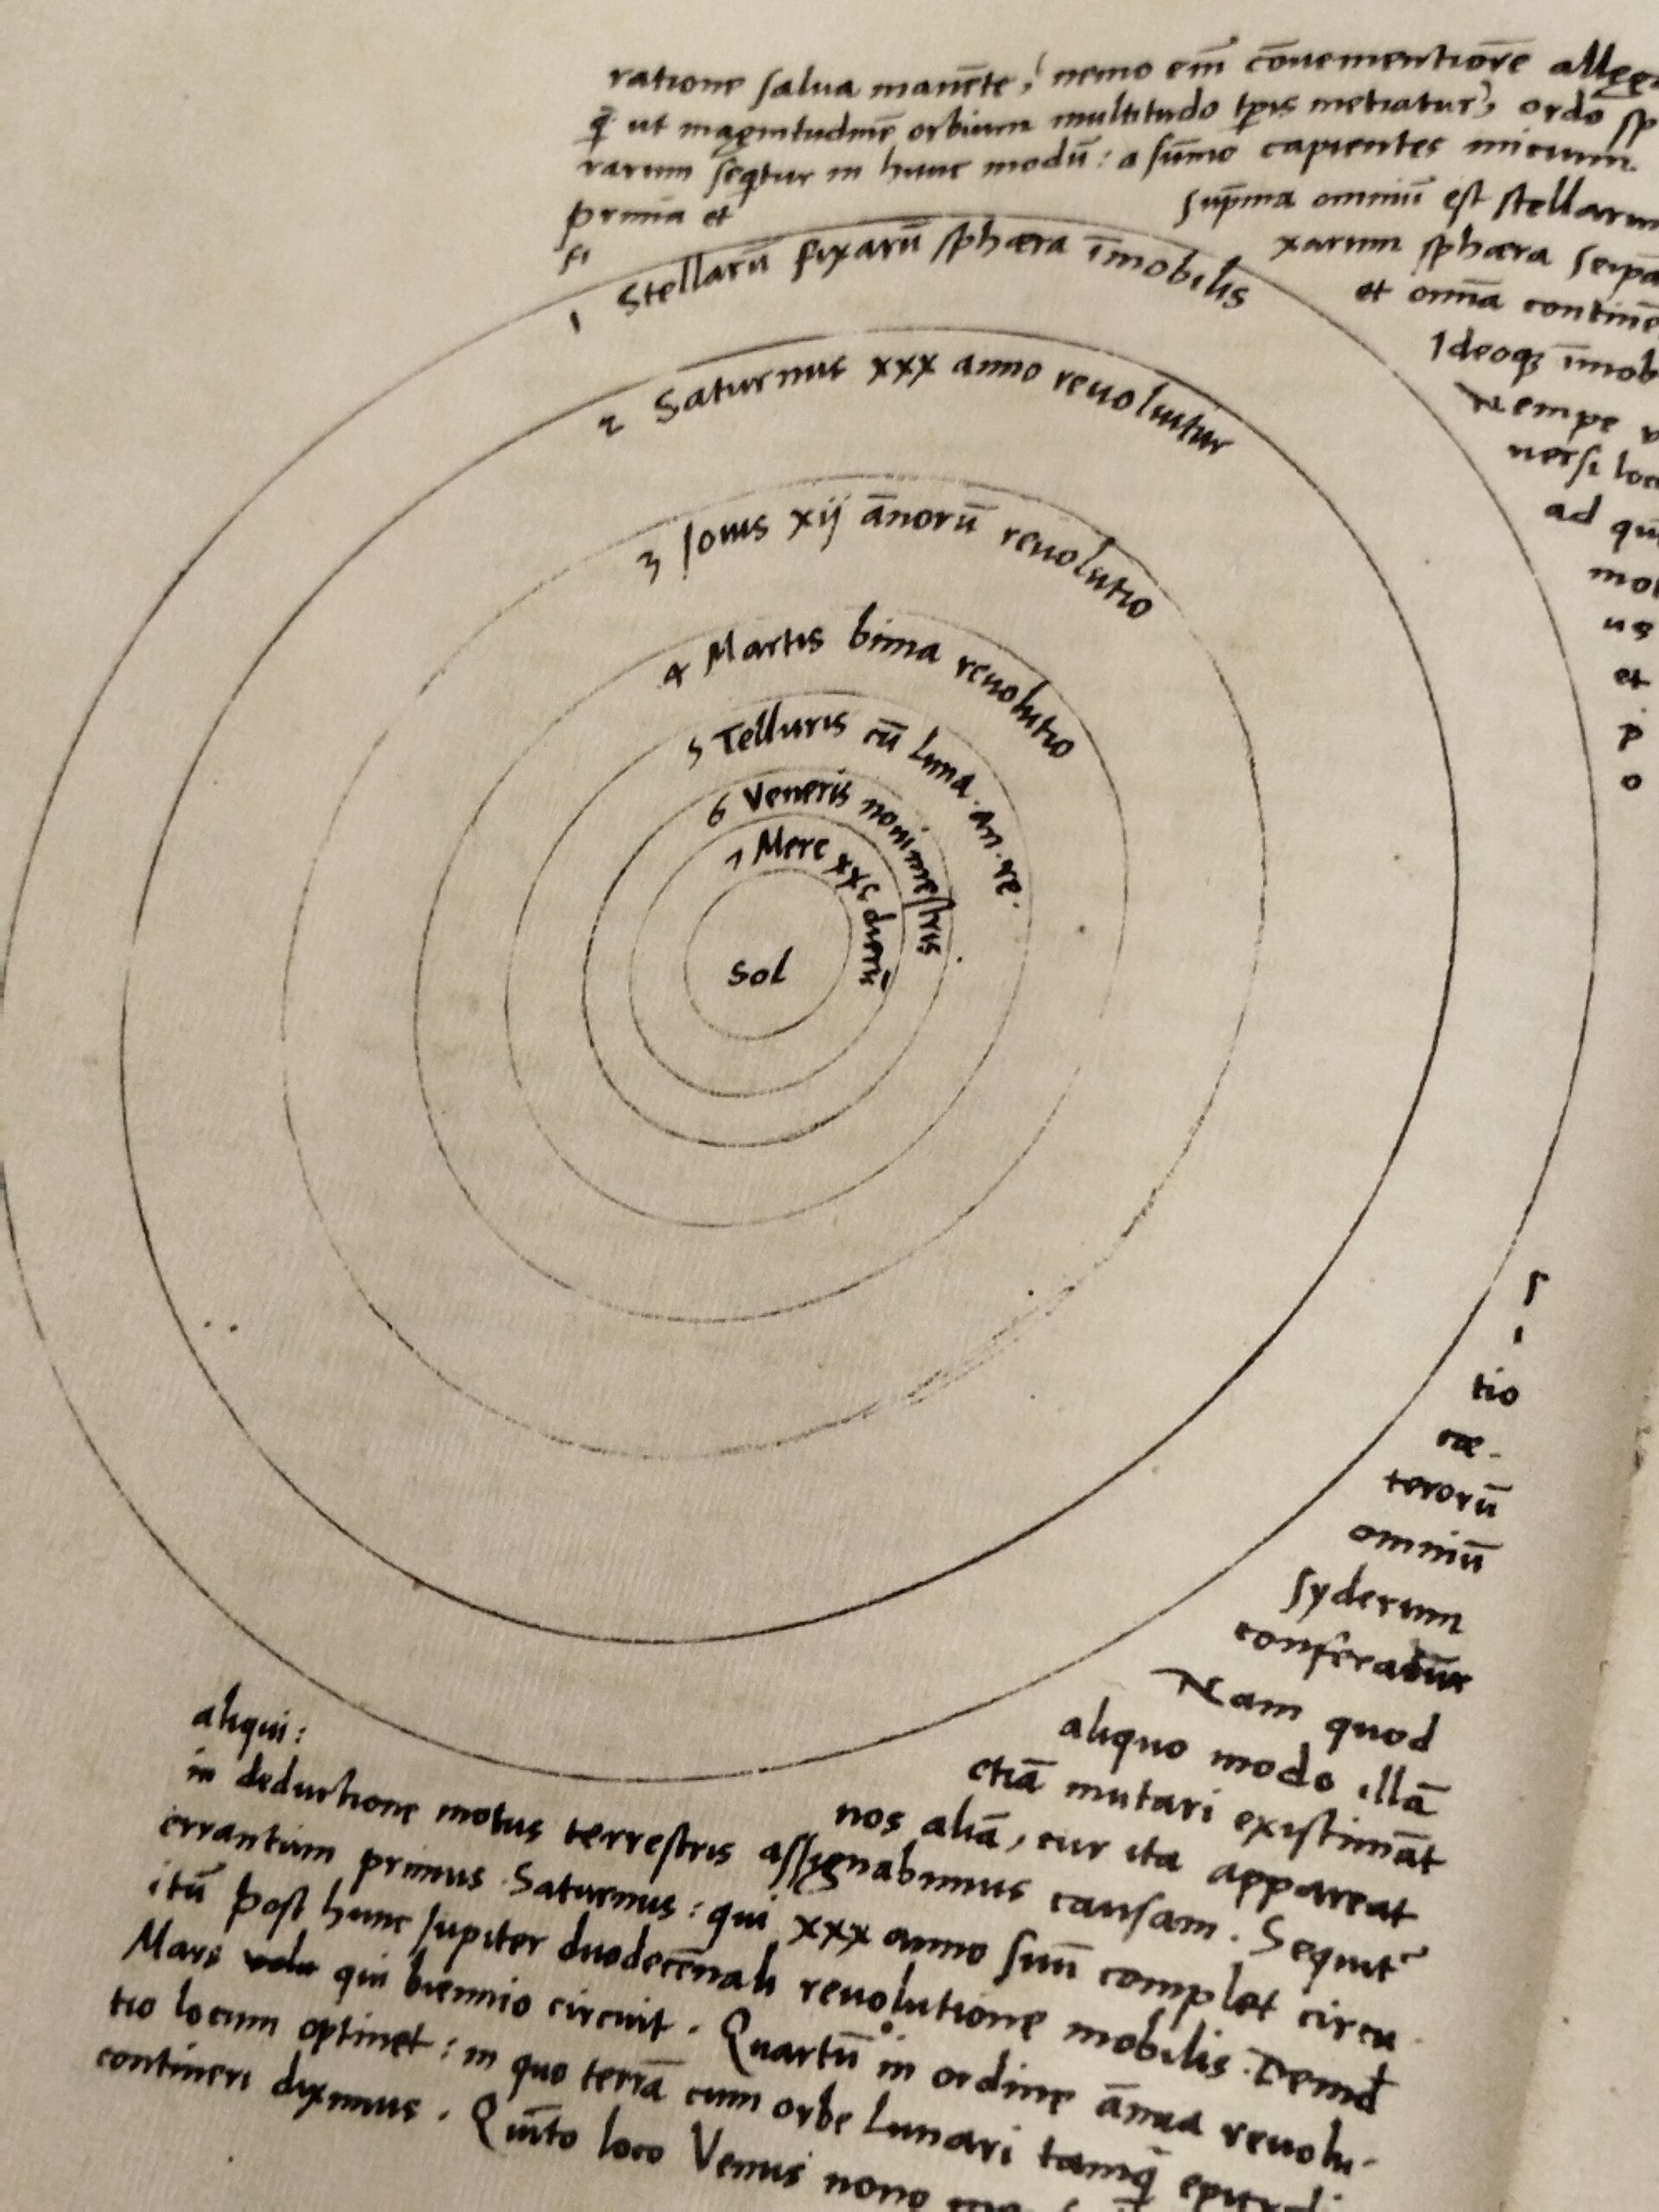 ratione salua manēte, nemo em̄ cōuenientiorē allega
q̄ ut magnitudinē orbium multitudo tp̄is metiatur, ordo sp
rarum seq̄tur in hunc modū: a sūmo capientes inicium.
prima et
Sup̄ma omniū est stellarum
fi
xarum sphæra seip̄a
et om̄ia continē
Ideoq̨ īmob
Nempe v
uersi loc
ad qu
mot
us
et
p
o
1 Stellarū fixarū sphæra īmobilis
2 Saturnus xxx anno reuoluitur
3 Iouis xij ānorū reuolutio
4 Martis bima reuolutio
5 Telluris cū Luna. an. re.
6 Veneris nonimestris.
7 Merc xxc dierū
Sol
s
i
tio
cæ-
terorū
omniū
syderum
conferatur
Nam quod
aliquo modo illā
etiā mutari existimāt
aliqui:
nos aliā, cur ita appareat
in deductione motus terrestris assignabimus causam. Sequit
errantium primus Saturnus: qui xxx anno suū complet circu
itū post hunc Iupiter duodecēnali reuolutione mobilis. Deind
Mars qui biennio circuit. Quartū in ordine ānua reuolu-
tio locum optinet: in quo terrā cum orbe Lunari tamq̄ epicycl
contineri diximus. Quīto loco Venus nono